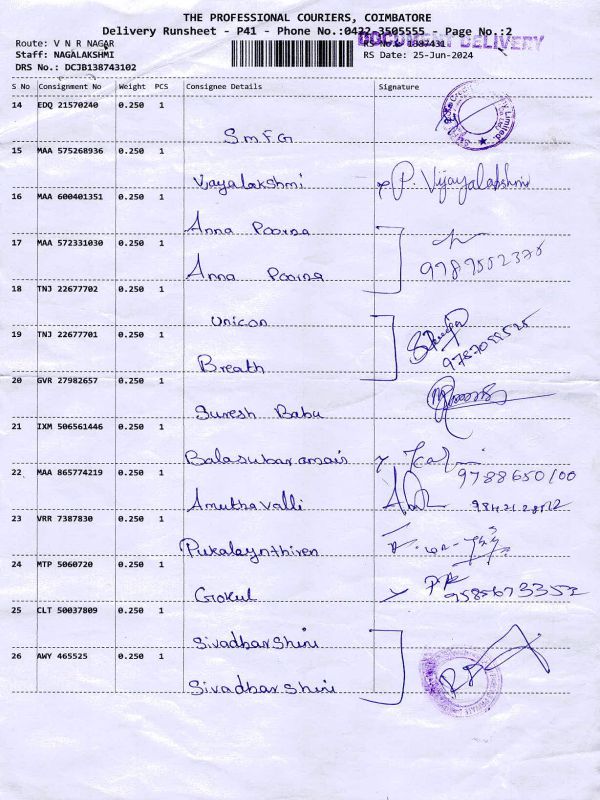 THE PROFESSIONAL COURIERS, COIMBATORE
Delivery Runsheet - P41 - Phone No.:0422-3505555 - Page No.:2
DOCUMENT DELIVERY
Route: V N R NAGAR
RS No.: 1887431
Staff: NAGALAKSHMI
RS Date: 25-Jun-2024
DRS No.: DCJB138743102
S No Consignment No Weight PCS Consignee Details Signature
14 EDQ 21570240 0.250 1
SMFG
15 MAA 575268936 0.250 1
Vijayalakshmi P. Vijayalakshmi
16 MAA 600401351 0.250 1
Anna Poorna
17 MAA 572331030 0.250 1
Anna Poorna 9789552375
18 TNJ 22677702 0.250 1
Unicon
19 TNJ 22677701 0.250 1
Breath
20 GVR 27982657 0.250 1
Suresh Babu
21 IXM 506561446 0.250 1
Balasubaramani
9788650100
22 MAA 865774219 0.250 1
Amuthavalli
23 VRR 7387830 0.250 1
Pukalaynthiren
24 MTP 5060720 0.250 1
Gokul
25 CLT 50037809 0.250 1
Sivadharshini
26 AWY 465525 0.250 1
Sivadharshini